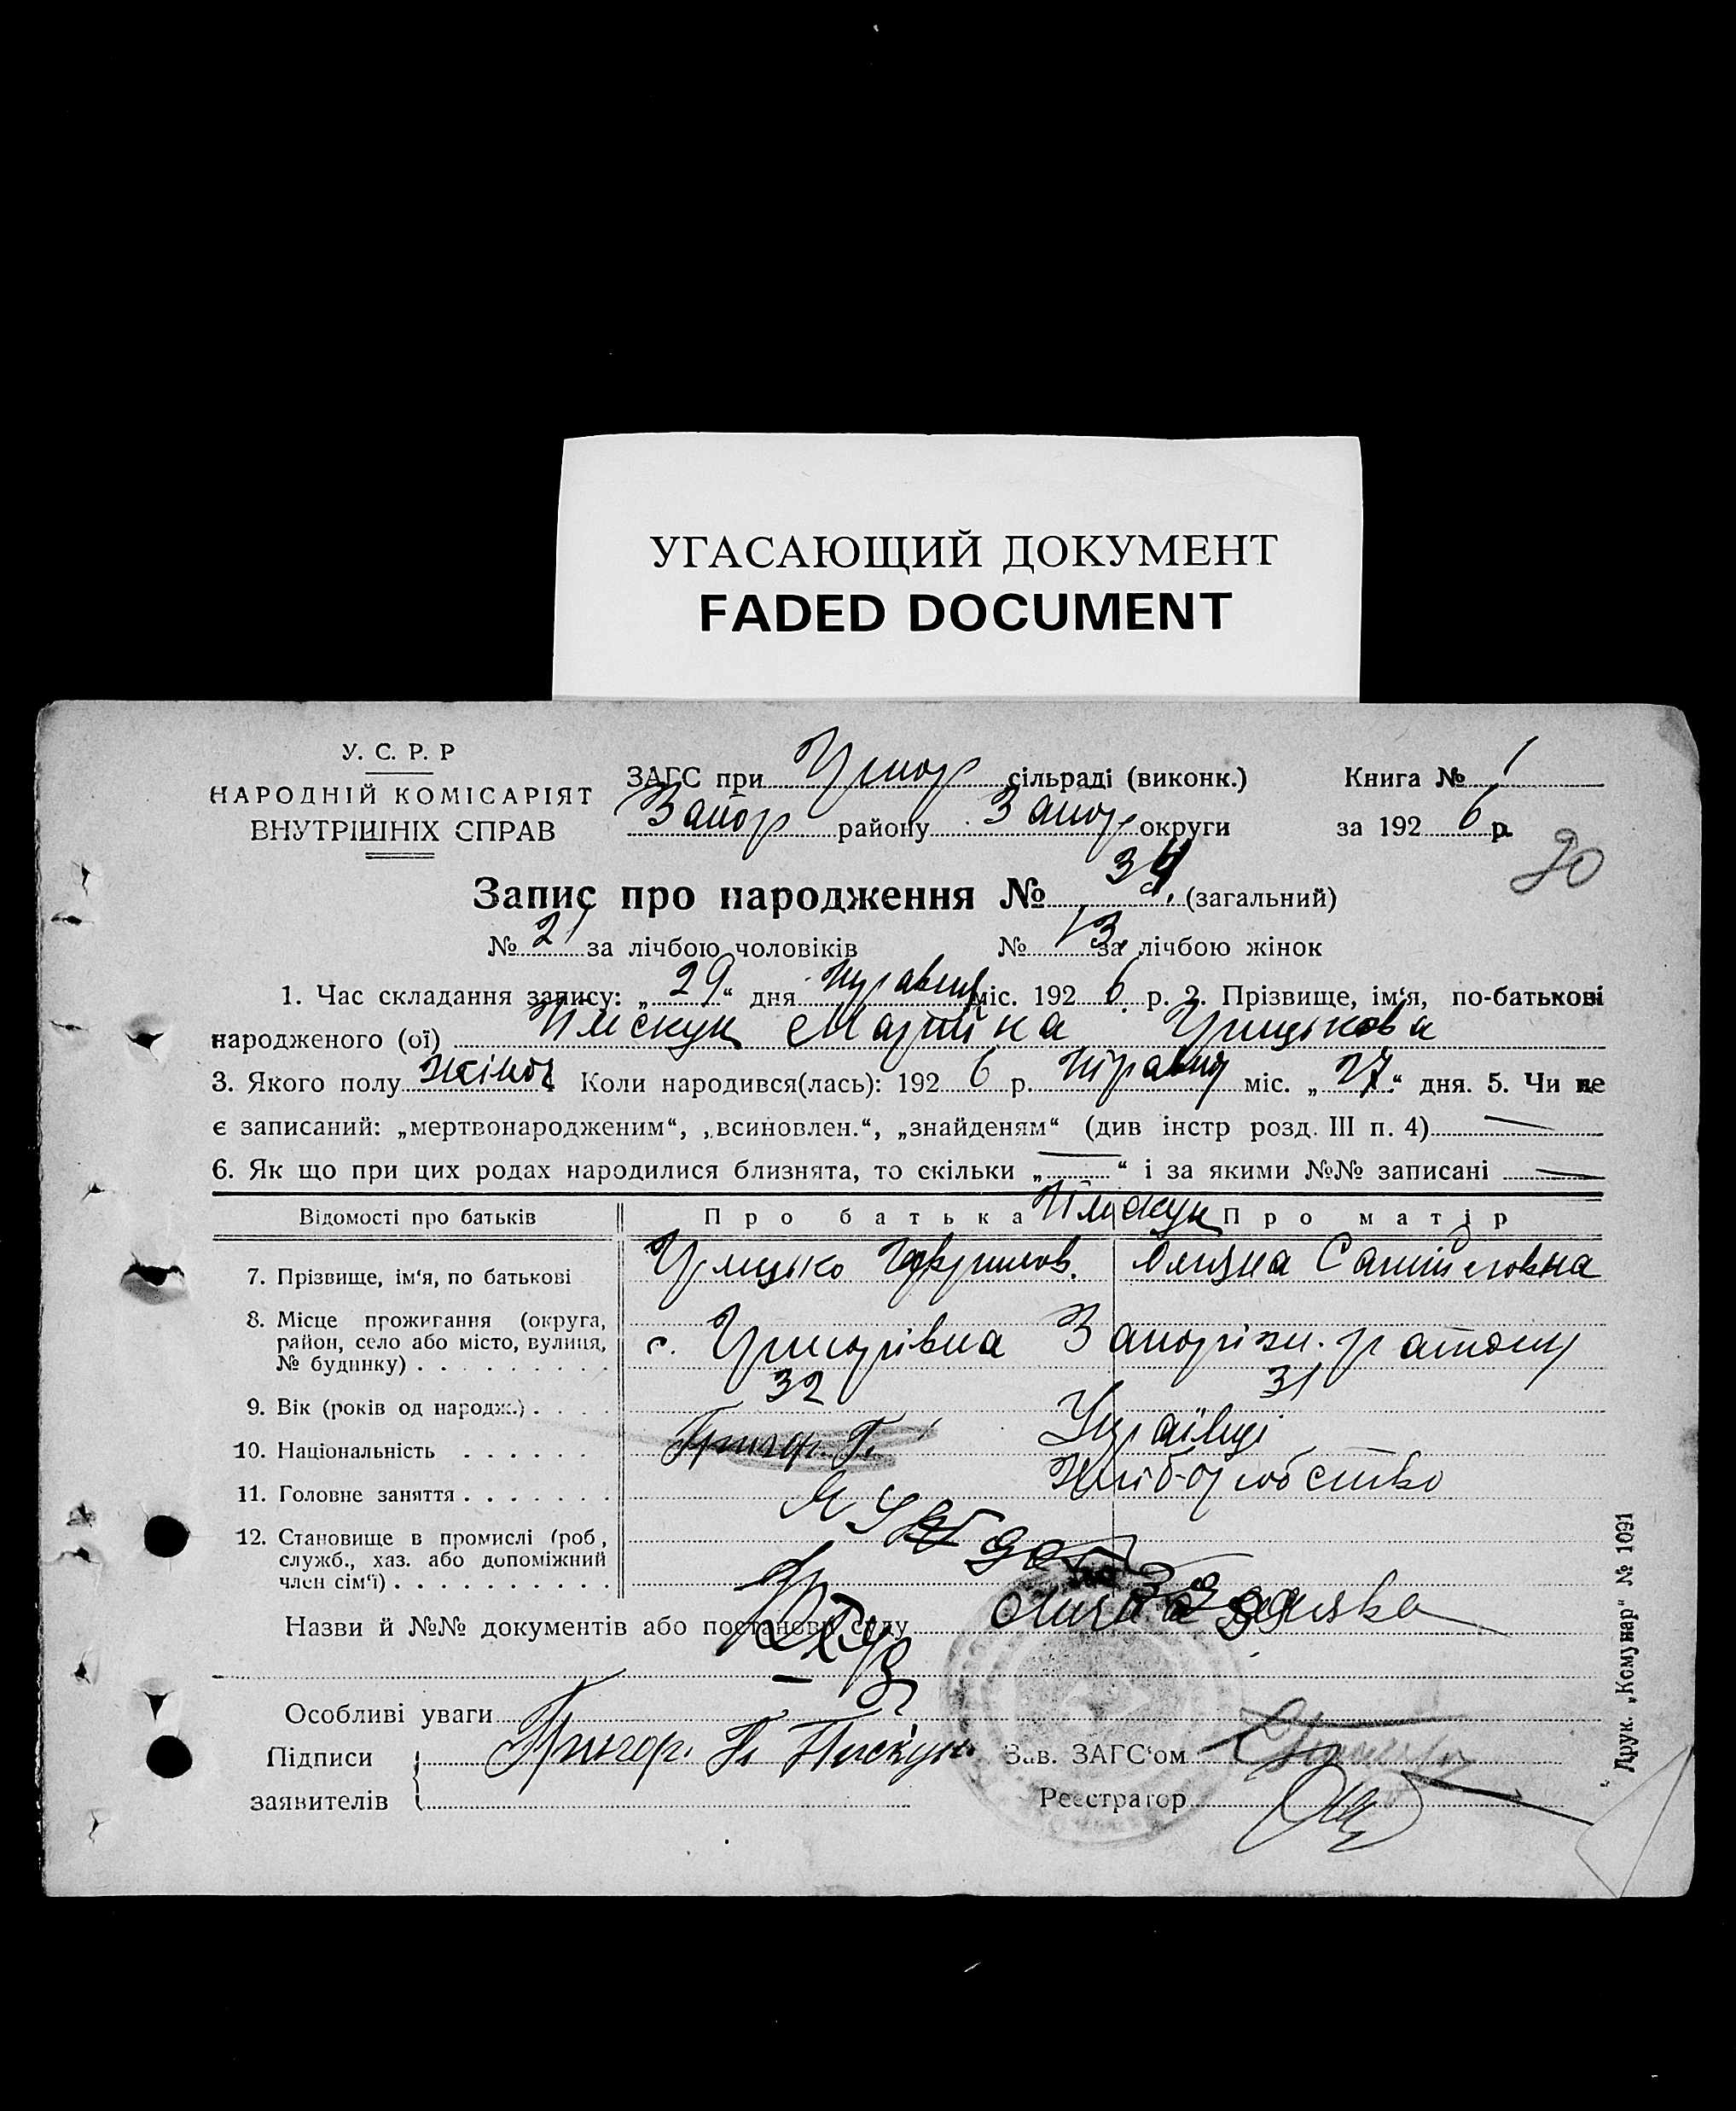 УГАСАЮЩИЙ ДОКУМЕНТ
FADED DOCUMENT
У. С. Р. Р
НАРОДНІЙ КОМІСАРІЯТ
ВНУТРІШНІХ СПРАВ
ЗАГС при Григор сільраді (виконк.) Книга № 1
Запор району Запор округи за 1926 р.
20
Запис про народження № 34 (загальний)
№ 21 за лічбою чоловіків № 13 за лічбою жінок
1. Час складання запису: „29“ дня травня міс. 1926 р. 2. Прізвище, ім‘я, по-батькові
народженого (ої) Піскун Марійка Грицькова
3. Якого полу жіноч Коли народився(лась): 1926 р. травня міс. „27“ дня. 5. Чи не
є записаний: „мертвонародженим“, „всиновлен.“, „знайденям“ (див інстр розд. III п. 4)
6. Як що при цих родах народилися близнята, то скільки „ “ і за якими №№ записані
Відомості про батьків Про батька Піскун Про матір
7. Прізвище, ім‘я, по батькові Грицько Гаврилов. Самійловна
8. Місце прожигання (округа,
район, село або місто, вулиця,
№ будинку) с. Григорівка Запоріжж. району
9. Вік (років од народж.) 32 31
10. Національність Григор. П. Українці
11. Головне заняття Хліборобство
12. Становище в промислі (роб,
служб., хаз. або допоміжний
член сім‘ї)
Назви й №№ документів або постанови суду
Особливі уваги
Підписи Григор. П Піскун Зав. ЗАГС‘ом
заявителів Реєстратор
Друк. „Комунар“ № 1091